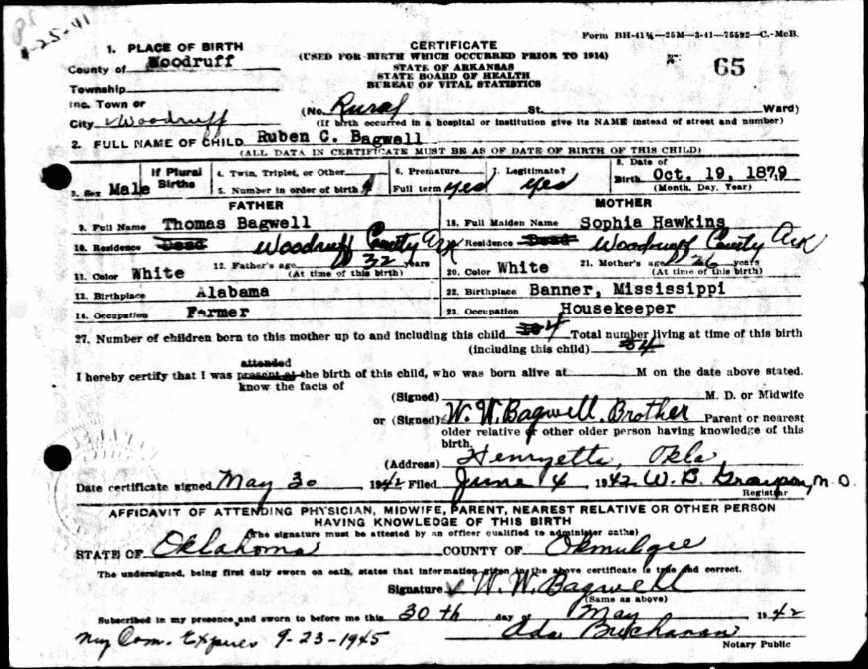 4-25-41
Form BH-41¼—25M—3-41—75592—C.-McB.
1. PLACE OF BIRTH
CERTIFICATE
County of Woodruff
(USED FOR BIRTH WHICH OCCURRED PRIOR TO 1914)
STATE OF ARKANSAS
STATE BOARD OF HEALTH
BUREAU OF VITAL STATISTICS
65
Township
Inc. Town or
City Woodruff (No. Rural St. Ward)
(If birth occurred in a hospital or institution give its NAME instead of street and number)
2. FULL NAME OF CHILD Ruben C. Bagwell
(ALL DATA IN CERTIFICATE MUST BE AS OF DATE OF BIRTH OF THIS CHILD)
3. Sex Male If Plural Births 4. Twin, Triplet, or Other 5. Number in order of birth 4 6. Premature Full term yes 7. Legitimate? yes 8. Date of Birth Oct. 19, 1879
(Month, Day, Year)
FATHER MOTHER
9. Full Name Thomas Bagwell 18. Full Maiden Name Sophia Hawkins
10. Residence Dead Woodruff County Ark Residence Dead Woodruff County Ark
11. Color White 12. Father's age 32 years (At time of this birth) 20. Color White 21. Mother's age 26 years (At time of this birth)
13. Birthplace Alabama 22. Birthplace Banner, Mississippi
14. Occupation Farmer 23. Occupation Housekeeper
27. Number of children born to this mother up to and including this child 4 Total number living at time of this birth
(including this child) 4
attended
I hereby certify that I was present at the birth of this child, who was born alive at M on the date above stated.
know the facts of
(Signed) M. D. or Midwife
or (Signed) W. W. Bagwell, Brother Parent or nearest
older relative or other older person having knowledge of this
birth.
(Address) Henryetta, Okla
Date certificate signed May 30 1942 Filed June 4 1942 W. B. M.D.
Registrar
AFFIDAVIT OF ATTENDING PHYSICIAN, MIDWIFE, PARENT, NEAREST RELATIVE OR OTHER PERSON
HAVING KNOWLEDGE OF THIS BIRTH
(The signature must be attested by an officer qualified to administer oaths)
STATE OF Oklahoma COUNTY OF Okmulgee
The undersigned, being first duly sworn on oath, states that information given in the above certificate is true and correct.
Signature W. W. Bagwell
(Same as above)
Subscribed in my presence and sworn to before me this 30th day of May 1942
My Com. Expires 9-23-1945 Ada Buchanan
Notary Public